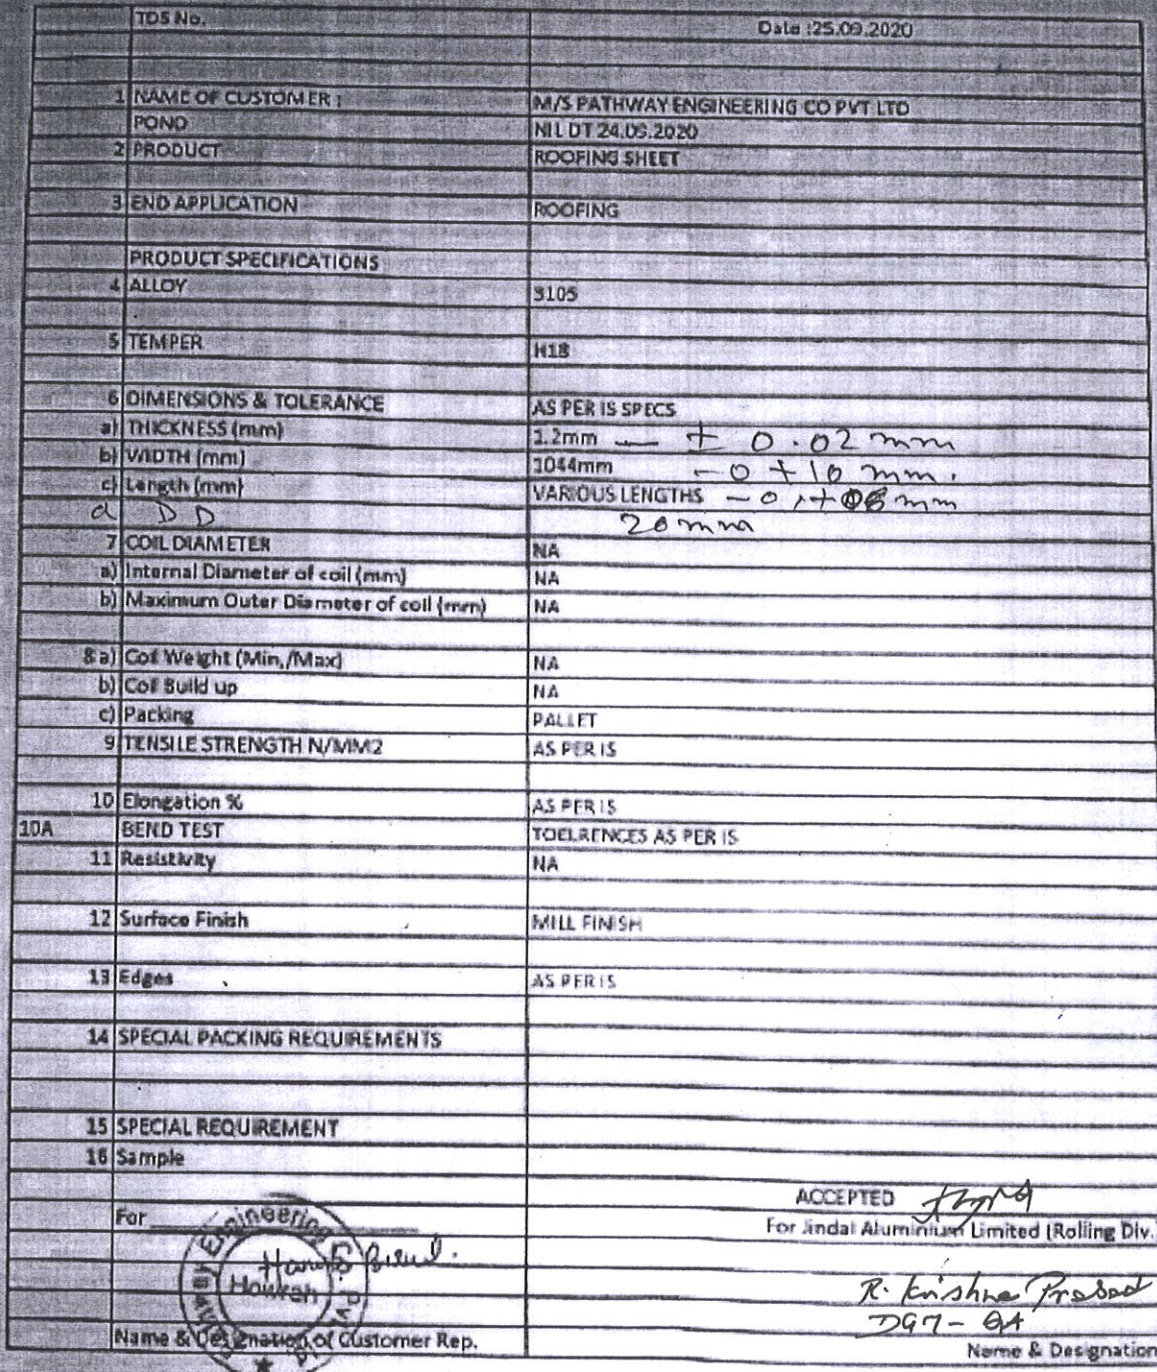 TDS No. Date :25.09.2020
1 NAME OF CUSTOMER : M/S PATHWAY ENGINEERING CO PVT LTD
POND NIL DT 24.09.2020
2 PRODUCT ROOFING SHEET
3 END APPLICATION ROOFING
PRODUCT SPECIFICATIONS
4 ALLOY 3105
5 TEMPER H18
6 DIMENSIONS & TOLERANCE AS PER IS SPECS
a) THICKNESS (mm) 1.2mm — ± 0.02 mm
b) WIDTH (mm) 1044mm - 0 + 10 mm.
c) Length (mm) VARIOUS LENGTHS - 0, + mm
d DD 20 mm
7 COIL DIAMETER NA
a) Internal Diameter of coil (mm) NA
b) Maximum Outer Diameter of coil (mm) NA
8 a) Coil Weight (Min,/Max) NA
b) Coil Build up NA
c) Packing PALLET
9 TENSILE STRENGTH N/MM2 AS PER IS
10 Elongation % AS PER IS
10A BEND TEST TOELRENCES AS PER IS
11 Resistivity NA
12 Surface Finish MILL FINISH
13 Edges AS PER IS
14 SPECIAL PACKING REQUIREMENTS
15 SPECIAL REQUIREMENT
16 Sample
ACCEPTED
For For Jindal Aluminium Limited (Rolling Div.
Engineering
Howrah
R. Krishna Prasad
DGM - QA
Name & Designation of Customer Rep. Name & Designation